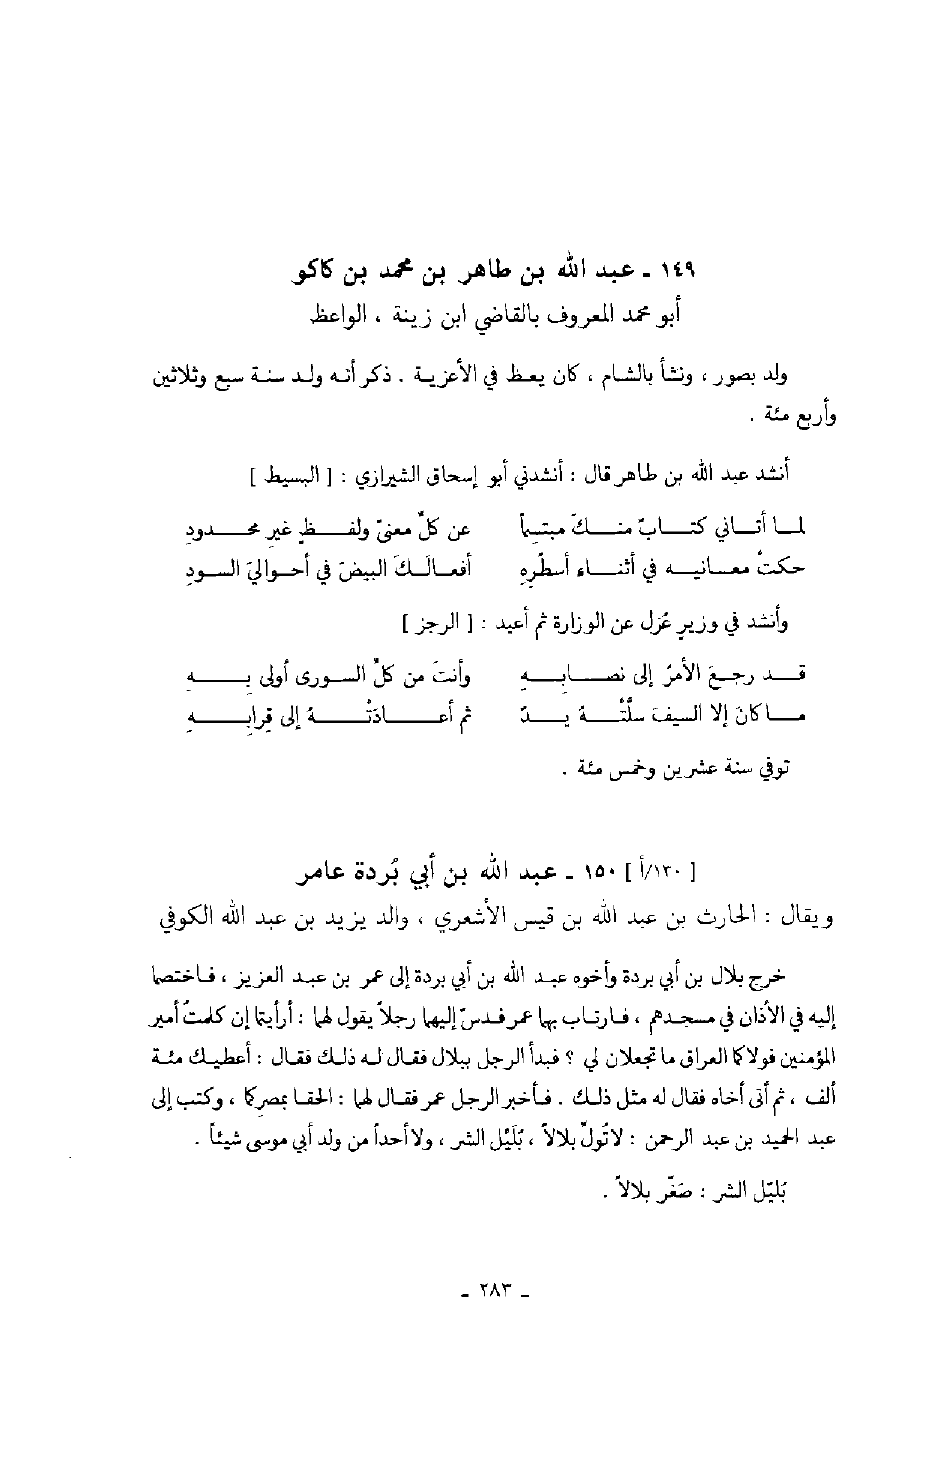 ١٤٩ ـ عبد الله بن طاهر بن محمد بن كاكو
أبو محمد المعروف بالقاضي ابن زينة ، الواعظ
ولد بصور ، ونشأ بالشام ، كان يعظ في الأعزية . ذكر أنه ولد سنة سبع وثلاثين
وأربع مئة .
أنشد عبد الله بن طاهر قال : أنشدني أبو إسحاق الشيرازي : [ البسيط ]
لما أتاني كتابٌ منكَ مبتسماً عن كلِّ معنىً ولفظٍ غيرِ محدودِ
حكتْ معانيه في أثناء أسطُرِهِ أفعالَكَ البيضَ في أحواليَ السودِ
وأنشد في وزيرٍ عُزل عن الوزارة ثم أعيد : [ الرجز ]
قد رجعَ الأمرُ إلى نصابِهِ وأنتَ من كلِّ الورى أولى بِهِ
ما كانَ إلا السيفَ سلَّتْهُ يدٌ ثم أعادَتْهُ إلى قِرابِهِ
توفي سنة عشرين وخمس مئة .
[ ١٣٠/أ ] ١٥٠ ـ عبد الله بن أبي بُردة عامر
ويقال : الحارث بن عبد الله بن قيس الأشعري ، والد يزيد بن عبد الله الكوفي
خرج بلال بن أبي بردة وأخوه عبد الله بن أبي بردة إلى عمر بن عبد العزيز ، فاختصما
إليه في الأذان في مسجدهم ، فارتاب بهما عمر فدسّ إليهما رجلاً يقول لهما : أرأيتما إن كلمتُ أمير
المؤمنين فولاكما العراق ما تجعلان لي ؟ فبدأ الرجل ببلال فقال له ذلك فقال : أعطيك مئة
ألف ، ثم أتى أخاه فقال له مثل ذلك . فأخبر الرجل عمر فقال لهما : الحقا بمصركما ، وكتب إلى
عبد الحميد بن عبد الرحمن : لا تُولِّ بلالاً ، بُلَيْل الشر ، ولا أحداً من ولد أبي موسى شيئاً .
بُليّل الشر : صَغّر بلالاً .
ـ ٢٨٣ ـ